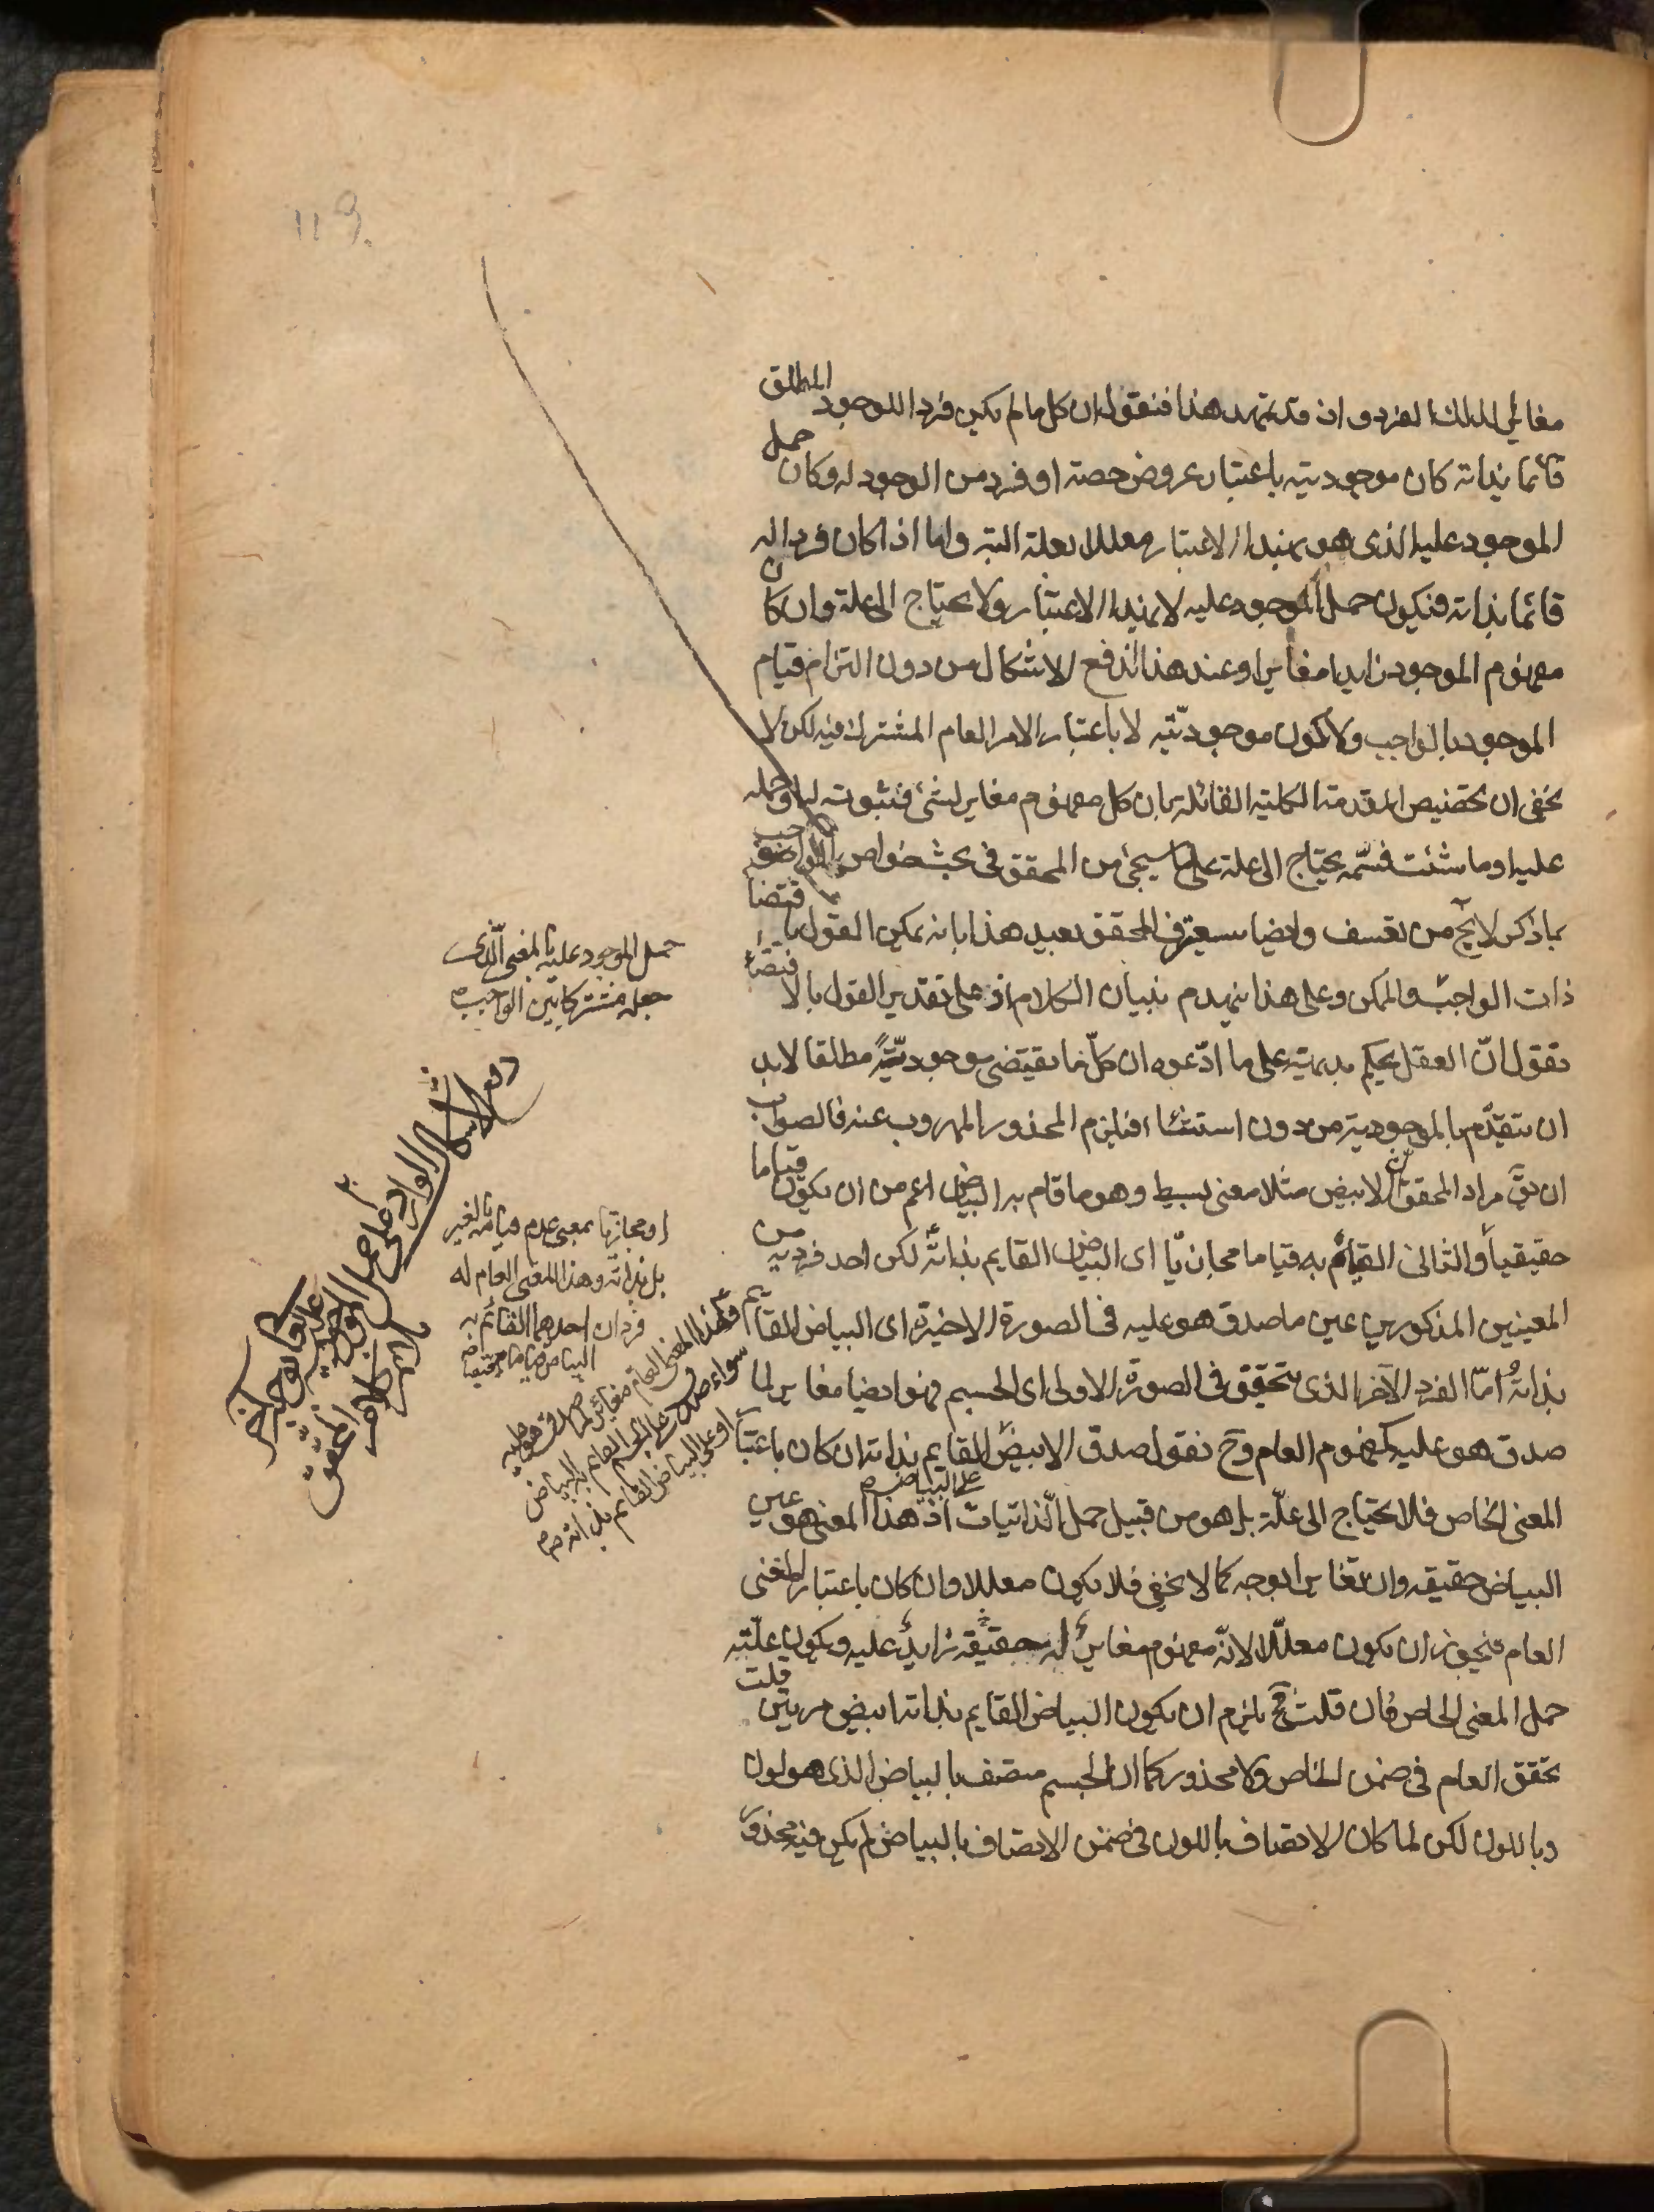 119
مغاير لذلك الفرد و اذ قد تمهد هذا فنقول ان كل ما لم يكن فردا للوجود المطلق
قائما بذاته كان موجوديته باعتبار عروض حصته او فرد من الوجود له وكان حمل
الموجود عليه الذى هو بهذا الاعتبار معللا بعلة البته واما اذا كان فردا له
قائما بذاته فيكون حمل الموجود عليه لا بهذا الاعتبار ولا يحتاج الى علة وان كان
مفهوم الموجود زايدا مغايرا وعند هذا اندفع الاشكال من دون التزام قيام
الوجود بالواجب ولا يكون موجوديته لا باعتبار الامر العام المشترك فيه لكن لا
يخفى ان تخصيص المقدمة الكلية القائلة بان كل مفهوم مغاير لشئ فثبوته له او حمله
عليه او ما شئت فسمه يحتاج الى علة على ما سيجئ من المحقق فى بحث خواص الواجب
بما ذكر لا يخ من تعسف وايضا سيعترف المحقق بعيد هذا بانه يمكن القول باقتضا
ذات الواجب والممكن وعلى هذا ينهدم بنيان الكلام اذ على تقدير القول بالاقتضاء
نقول انّ العقل يحكم بديهة على ما ادّعوه ان كلّ ما يقتضى موجوديّته مطلقا لابد
ان يتقدّم بالموجودية من دون استثناء فيلزم المحذور المهروب عنه فالصواب
ان يقّ مراد المحقق ان الابيض مثلا معنى بسيط وهو ما قام به البياض اعم من ان يكون قياما
حقيقيا والثانى القائم به قياما مجازيّا اى البياض القايم بذاته لكن احد فرديه من
المعنيين المذكورين عين ما صدق هو عليه فى الصورة الاخيرة اى البياض القايم
بذاته امّا الفرد الآخر الذى يتحقق فى الصورة الاولى اى الجسم فهو ايضا مغاير لما
صدق هو عليه كمفهوم العام وح نقول صدق الابيض القايم بذاته ان كان باعتبار
على البياض
المعنى الخاص فلا يحتاج الى علّة بل هو من قبيل حمل الذّاتيات اذ هذا المعنى هو عين
البياض حقيقه وان تغايرا بوجه كما لا يخفى فلا يكون معللا وان كان باعتبار المعنى
العام فيجوز ان يكون معلّلا لانّه مفهوم مغاير له حقيقه زايد عليه ويكون علّته
حمل المعنى الخاص فان قلت ح يلزم ان يكون البياض القايم بذاته ابيض مرتين قلت
تحقق العام فى ضمن الخاص ولا محذور كما ان الجسم متصف بالبياض الذى هو لون
وباللون لكن لما كان الاتصاف باللون فى ضمن الاتصاف بالبياض لم يكن فيه محذور
حمل الموجود عليه بالمعنى الّذى
جعله مشتركا بين الواجب
دفع الاشكال الوارد على
او مجازيا بمعنى عدم قيامه بالغير
بل بذاته وهذا المعنى العام له
فردان احدهما القائم به
البياض قياما حقيقيا
فهذا المعنى العام مغاير لما صدق هو عليه
سواء صدق على الجسم القايم به البياض
او على البياض القايم بذاته